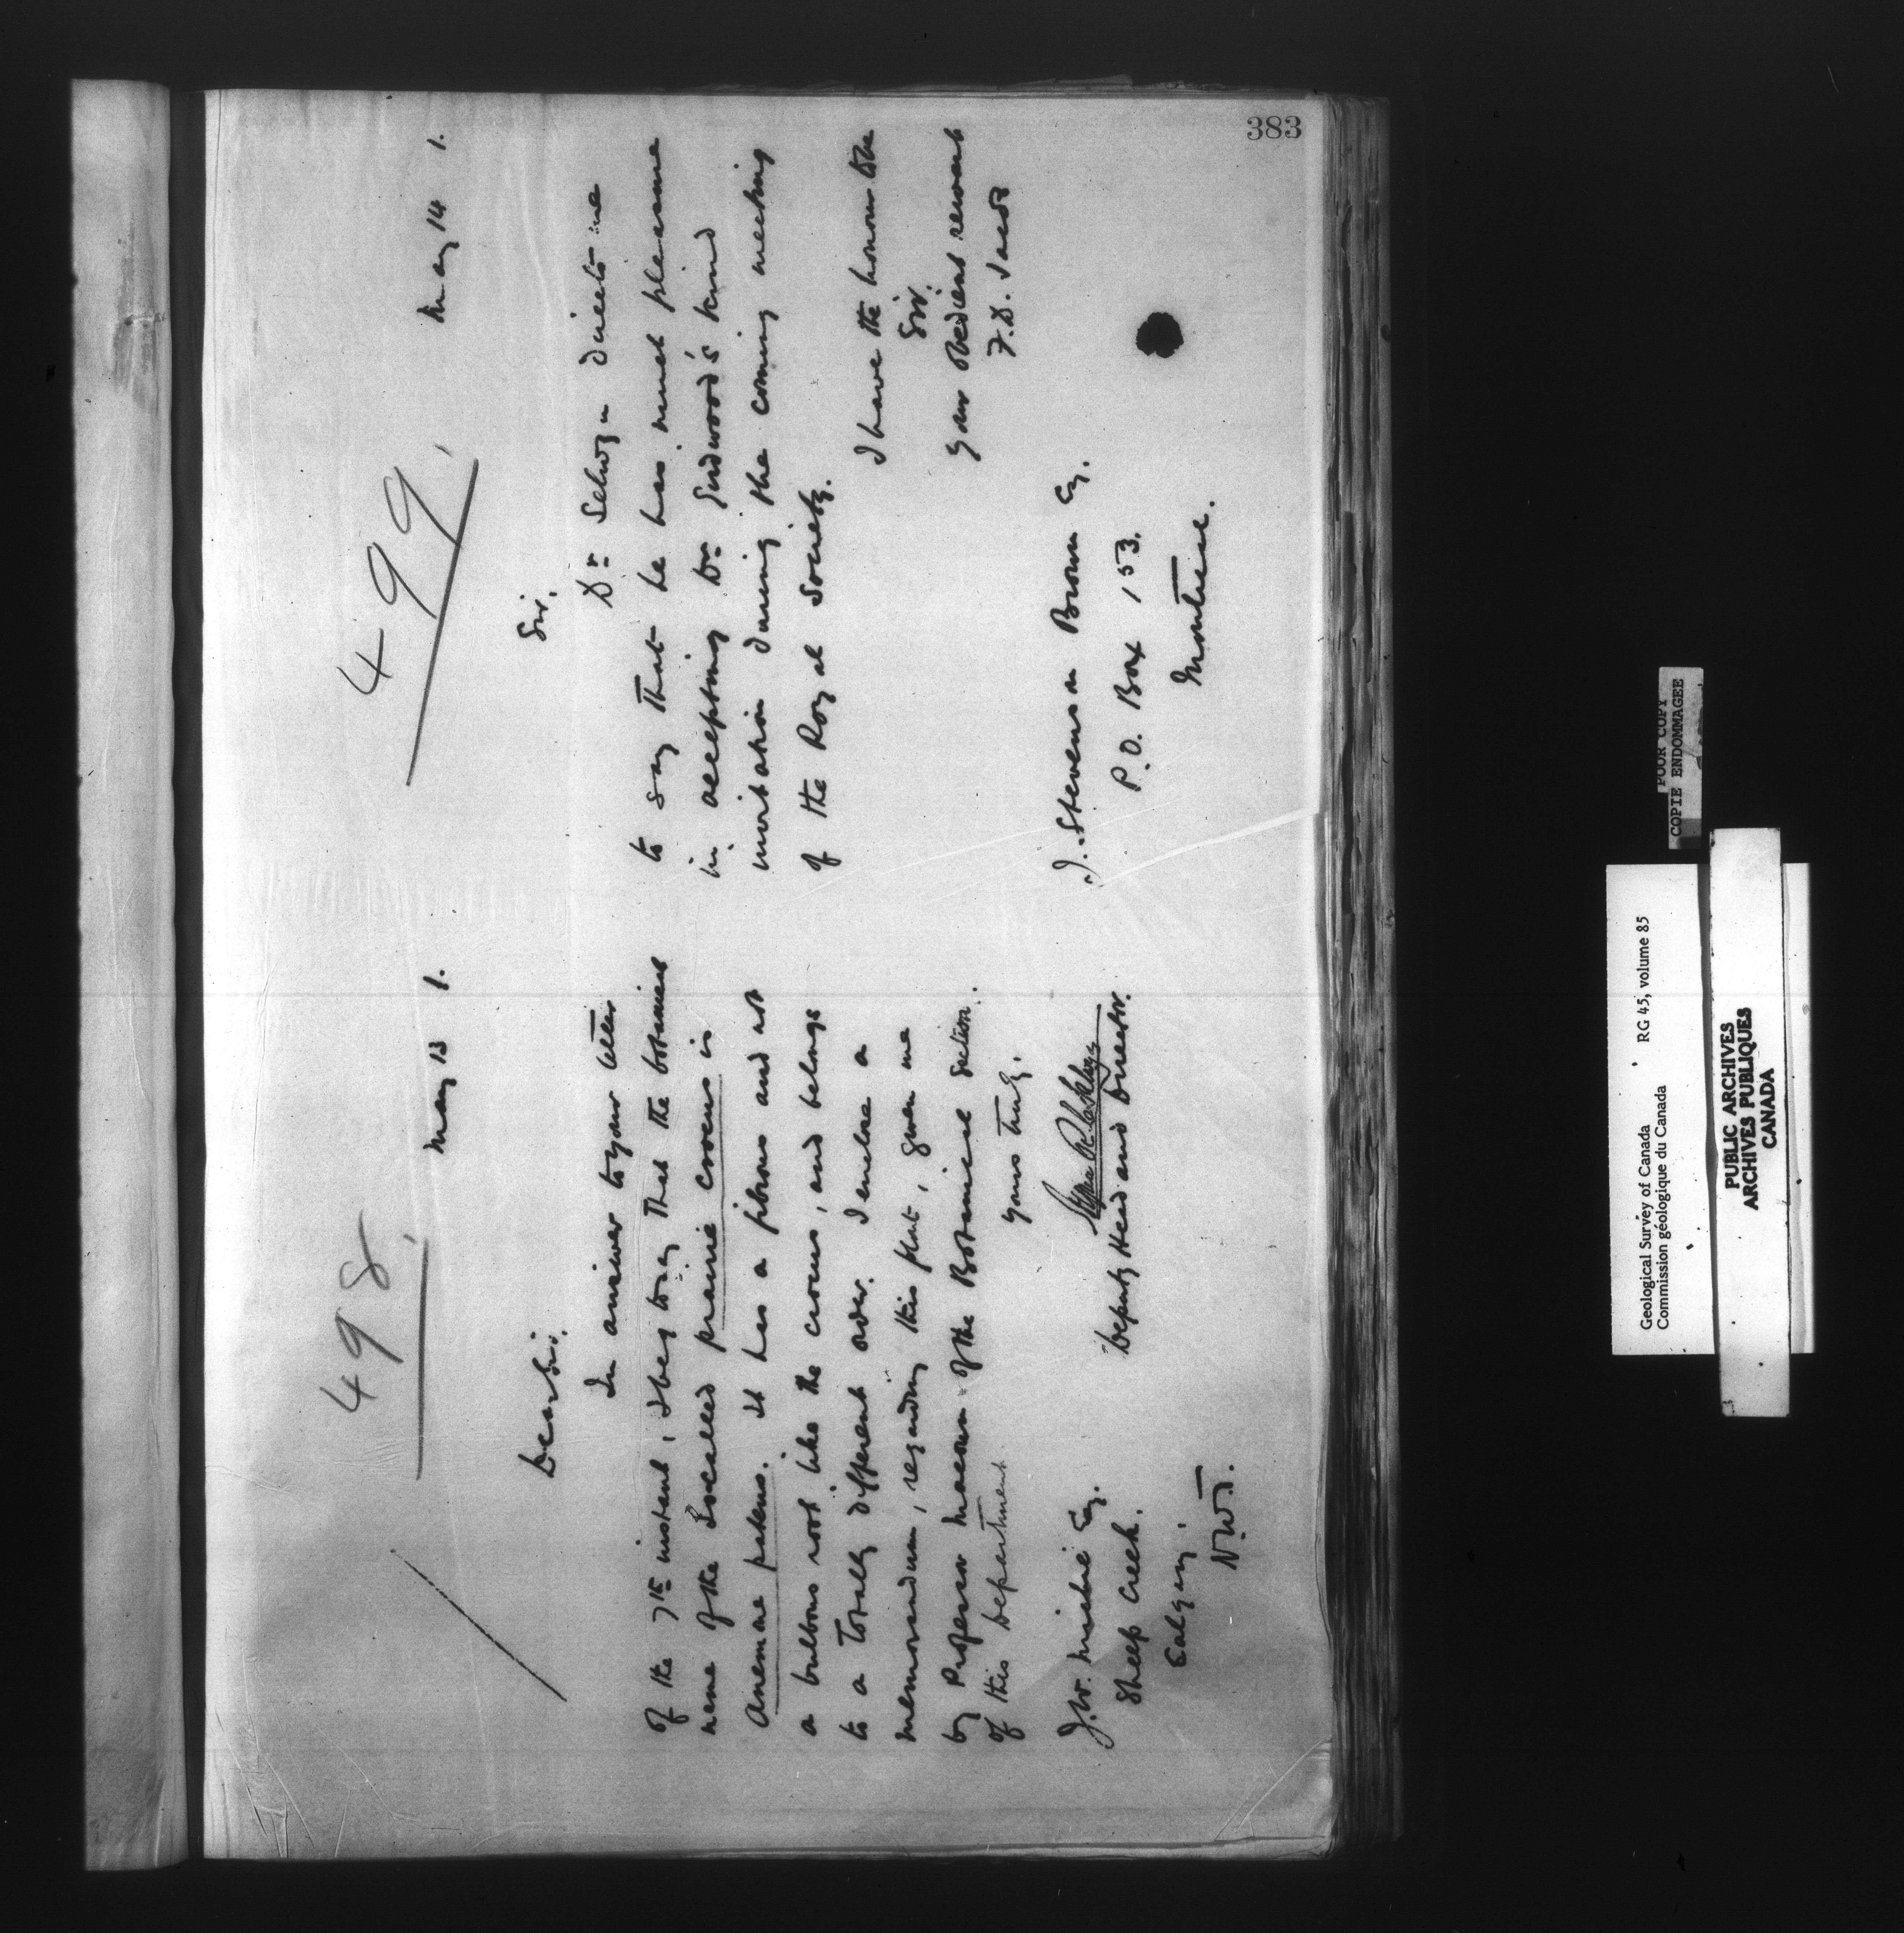 383
498.
May 13 1.
Dear Sir.
In answer to your letter
of the 7th instant, I beg to say that the botanical
name of the so called prairie crocus is
Anemone patens. It has a fibrous and not
a bulbous root like the crocus, and belongs
to a totally different order. I enclose a
memorandum, regarding this plant, given me
by Professor Macoun of the Botanical section
of this Department.
Yours truly.
Deputy Head and Director.
J.W. Esq.
Sheep Creek.
Calgary.
N.W.T.
499.
May 14 1.
Sir.
Dr Selwyn directs me
to say that he has much pleasure
in accepting Dr Girdwood's kind
invitation during the coming meeting
of the Royal Society.
I have the honour to be
Sir.
Your obedient servant
J. Stevenson Brown Esq.
P.O. Box 153.
Montreal.
POOR COPY
COPIE ENDOMMAGEE
Geological Survey of Canada RG 45, volume 85
Commission géologique du Canada
PUBLIC ARCHIVES
ARCHIVES PUBLIQUES
CANADA